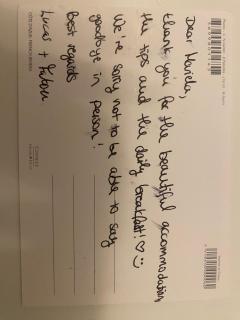 Dear Mariela,
thank you for the beautiful accommodation,
the tips and the daily breakfast! ♡☺
We're sorry not to be able to say
goodbye in person!
Best regards
Lucas +